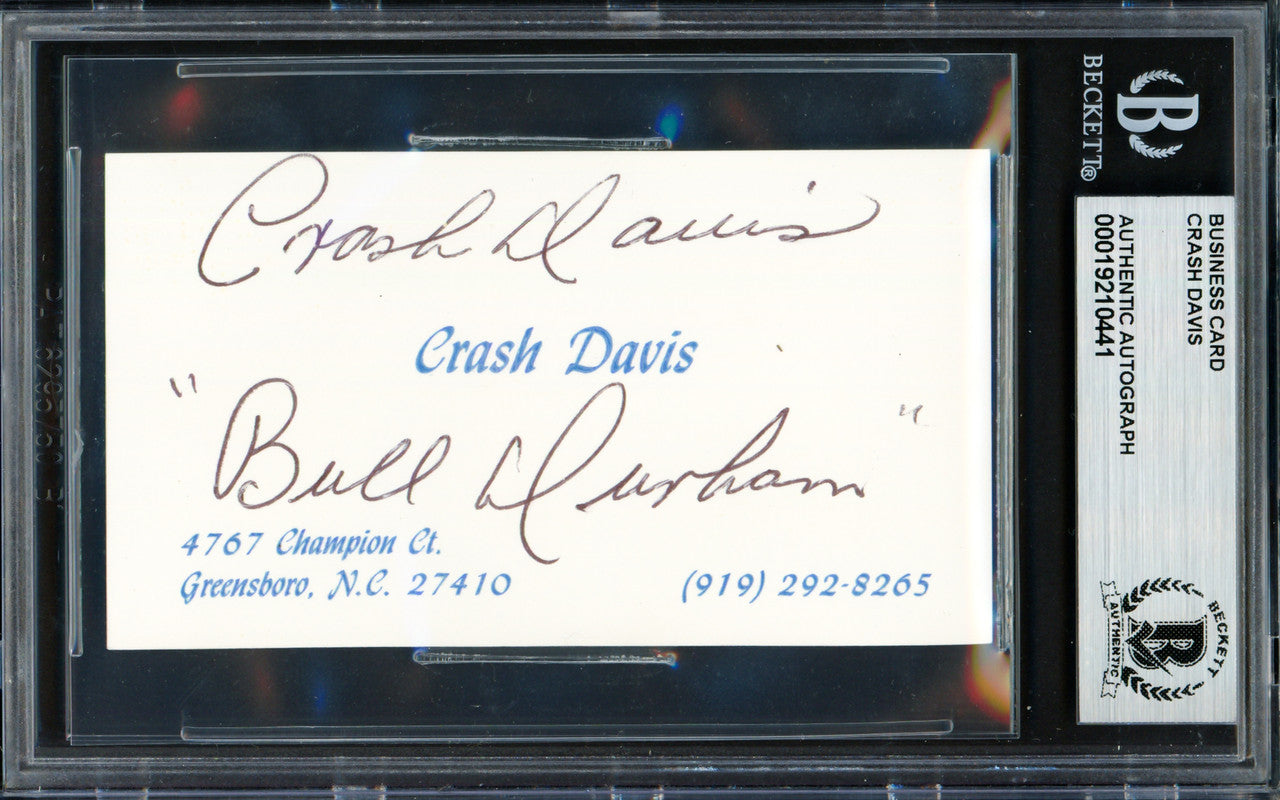 Crash Davis
Crash Davis
"Bull Durham"
4767 Champion Ct.
Greensboro, N.C. 27410
(919) 292-8265
BECKETT®
B
BUSINESS CARD
CRASH DAVIS
AUTHENTIC AUTOGRAPH
00019210441
BECKETT
B
AUTHENTIC